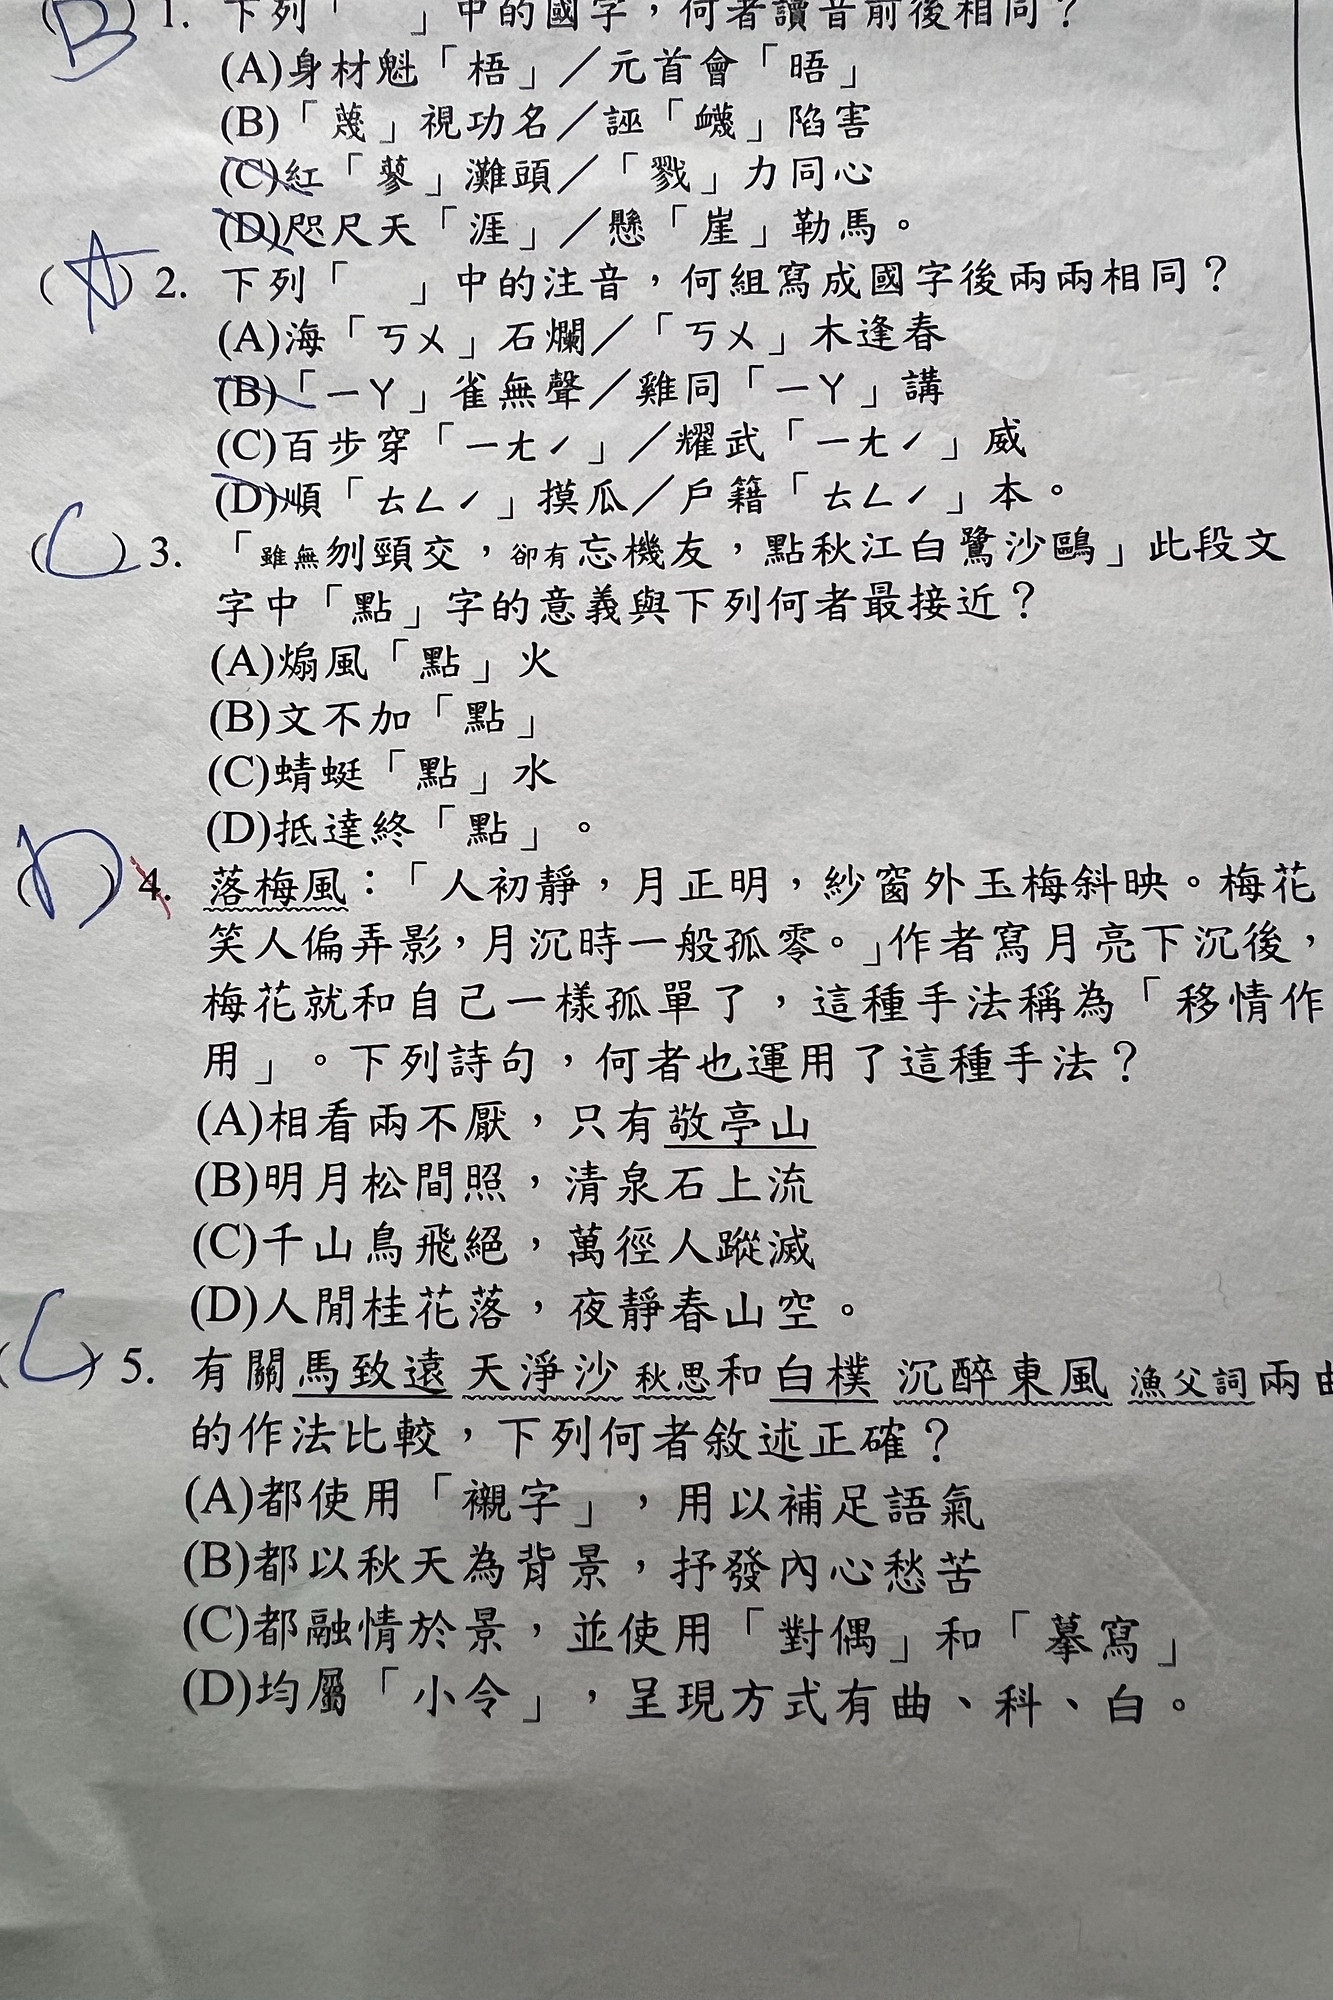 (B)1. 下列「　」中的國字，何者讀音前後相同？
(A)身材魁「梧」／元首會「晤」
(B)「蔑」視功名／誣「衊」陷害
(C)紅「蓼」灘頭／「戮」力同心
(D)咫尺天「涯」／懸「崖」勒馬。
(A)2. 下列「　」中的注音，何組寫成國字後兩兩相同？
(A)海「ㄎㄨ」石爛／「ㄎㄨ」木逢春
(B)「ㄧㄚ」雀無聲／雞同「ㄧㄚ」講
(C)百步穿「ㄧㄤˊ」／耀武「ㄧㄤˊ」威
(D)順「ㄊㄥˊ」摸瓜／戶籍「ㄊㄥˊ」本。
(C)3. 「雖無刎頸交，卻有忘機友，點秋江白鷺沙鷗」此段文
字中「點」字的意義與下列何者最接近？
(A)煽風「點」火
(B)文不加「點」
(C)蜻蜓「點」水
(D)抵達終「點」。
(D)4. 落梅風：「人初靜，月正明，紗窗外玉梅斜映。梅花
笑人偏弄影，月沉時一般孤零。」作者寫月亮下沉後，
梅花就和自己一樣孤單了，這種手法稱為「移情作
用」。下列詩句，何者也運用了這種手法？
(A)相看兩不厭，只有敬亭山
(B)明月松間照，清泉石上流
(C)千山鳥飛絕，萬徑人蹤滅
(D)人閒桂花落，夜靜春山空。
(C)5. 有關馬致遠 天淨沙 秋思和白樸 沉醉東風 漁父詞兩曲
的作法比較，下列何者敘述正確？
(A)都使用「襯字」，用以補足語氣
(B)都以秋天為背景，抒發內心愁苦
(C)都融情於景，並使用「對偶」和「摹寫」
(D)均屬「小令」，呈現方式有曲、科、白。